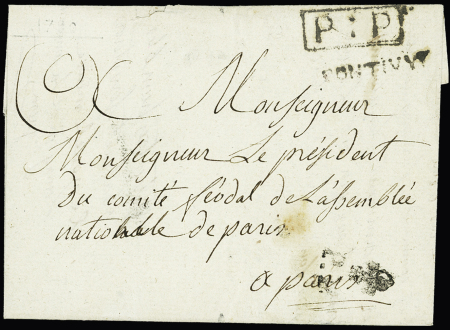 P : P
PONTIVY
Monseigneur
Monseigneur Le président
Du comité féodal de L'assemblée
nationale de paris
a paris